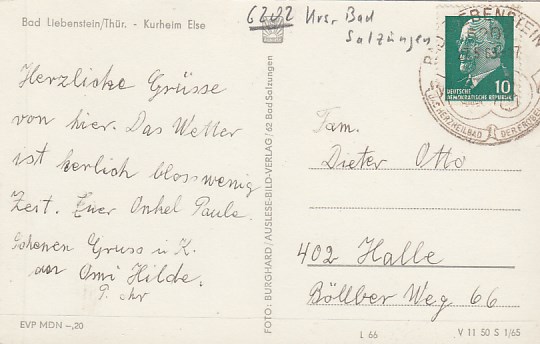 Bad Liebenstein/Thür. - Kurheim Else
6202 Krs. Bad
Salzungen
Herzliche Grüsse
von hier. Das Wetter
ist herlich bloss wenig
Zeit. Euer Onkel Paule.
Schönen Gruss u. K.
Omi Hilde.
Fam.
Dieter Otto
402 Halle
Böllber Weg 66
FOTO: BURGHARD / AUSLESE-BILD-VERLAG / 62 Bad Salzungen
10
DEUTSCHE
DEMOKRATISCHE REPUBLIK
HERZHEILBAD DER
EVP MDN -,20
L 66
V 11 50 S 1/65